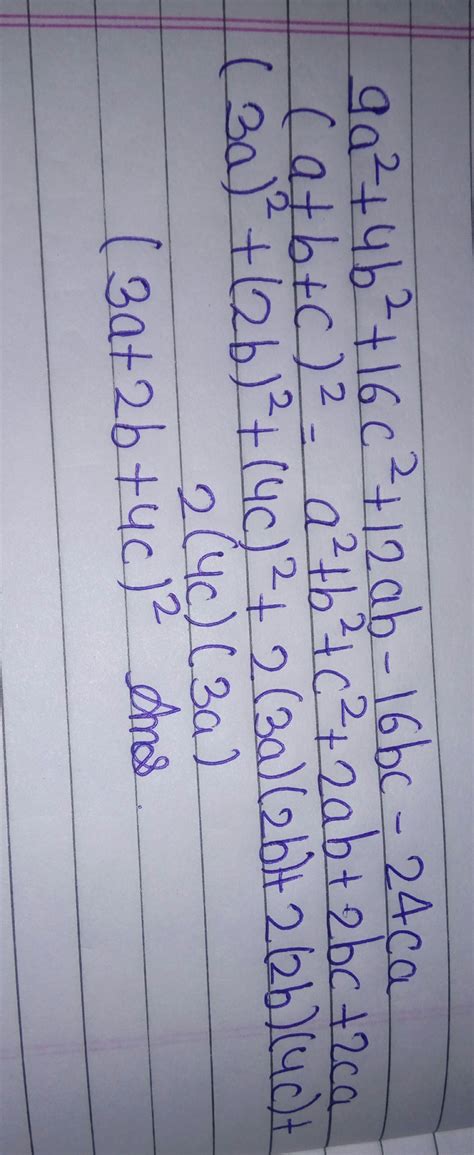 9a²+4b²+16c²+12ab-16bc-24ca
(a+b+c)² = a²+b²+c²+2ab+2bc+2ca
(3a)²+(2b)²+(4c)²+2(3a)(2b)+2(2b)(4c)+
2(4c)(3a)
(3a+2b+4c)² Ans.